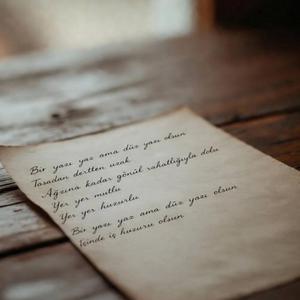 Bir yazı yaz ama düz yazı olsun
Tasadan dertten uzak
Ağzına kadar gönül rahatlığıyla dolu
Yer yer mutlu
Yer yer huzurlu
Bir yazı yaz ama düz yazı olsun
İçinde iç huzuru olsun